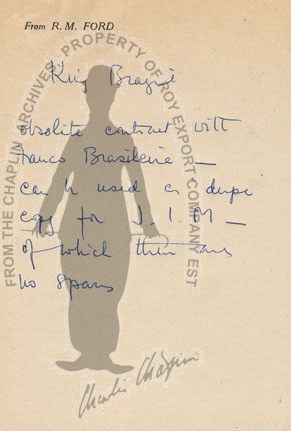 From R. M. FORD
King Brazil
obsolite contract with
Franco Brasileire —
can be used as dupe
copy for J. I. M —
of which there are
no spares
FROM THE CHAPLIN ARCHIVES PROPERTY OF ROY EXPORT COMPANY EST
Charlie Chaplin